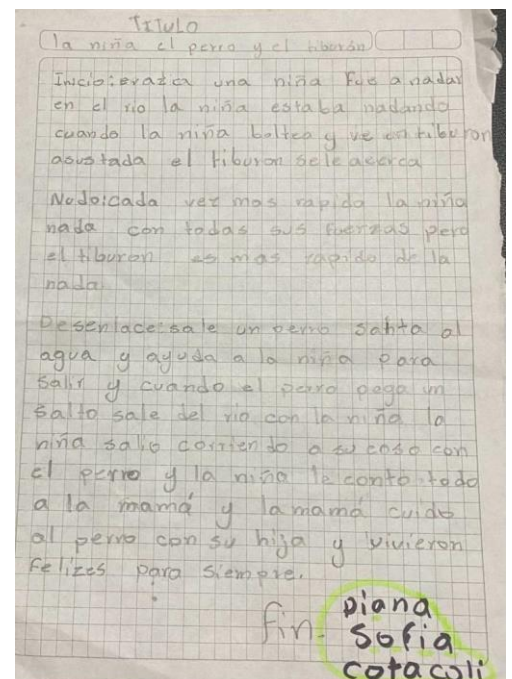 TITULO
la niña el perro y el tiburón
Inicio: erazca una niña Fue a nadar
en el rio la niña estaba nadando
cuando la niña boltea y ve un tiburon
asustada el tiburon se le acerca
Nudo: cada vez mas rapido la niña
nada con todas sus fuerzas pero
el tiburon es mas rapido de la
nada
Desenlace: sale un perro salta al
agua y ayuda a la niña para
salir y cuando el perro pega un
salto sale del rio con la niña la
niña salio corriendo a su casa con
el perro y la niña le contó todo
a la mamá y la mamá cuido
al perro con su hija y vivieron
Felizes para siempre.
Fin-
Diana
Sofia
cotacoli